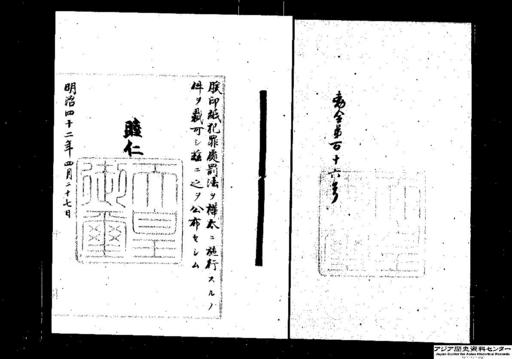 勅令第百十六号
朕印紙犯罪處罰法ヲ樺太ニ施行スルノ
件ヲ裁可シ茲ニ之ヲ公布セシム
睦仁
天皇
御璽
明治四十二年四月二十七日
アジア歴史資料センター
Japan Center for Asian Historical Records